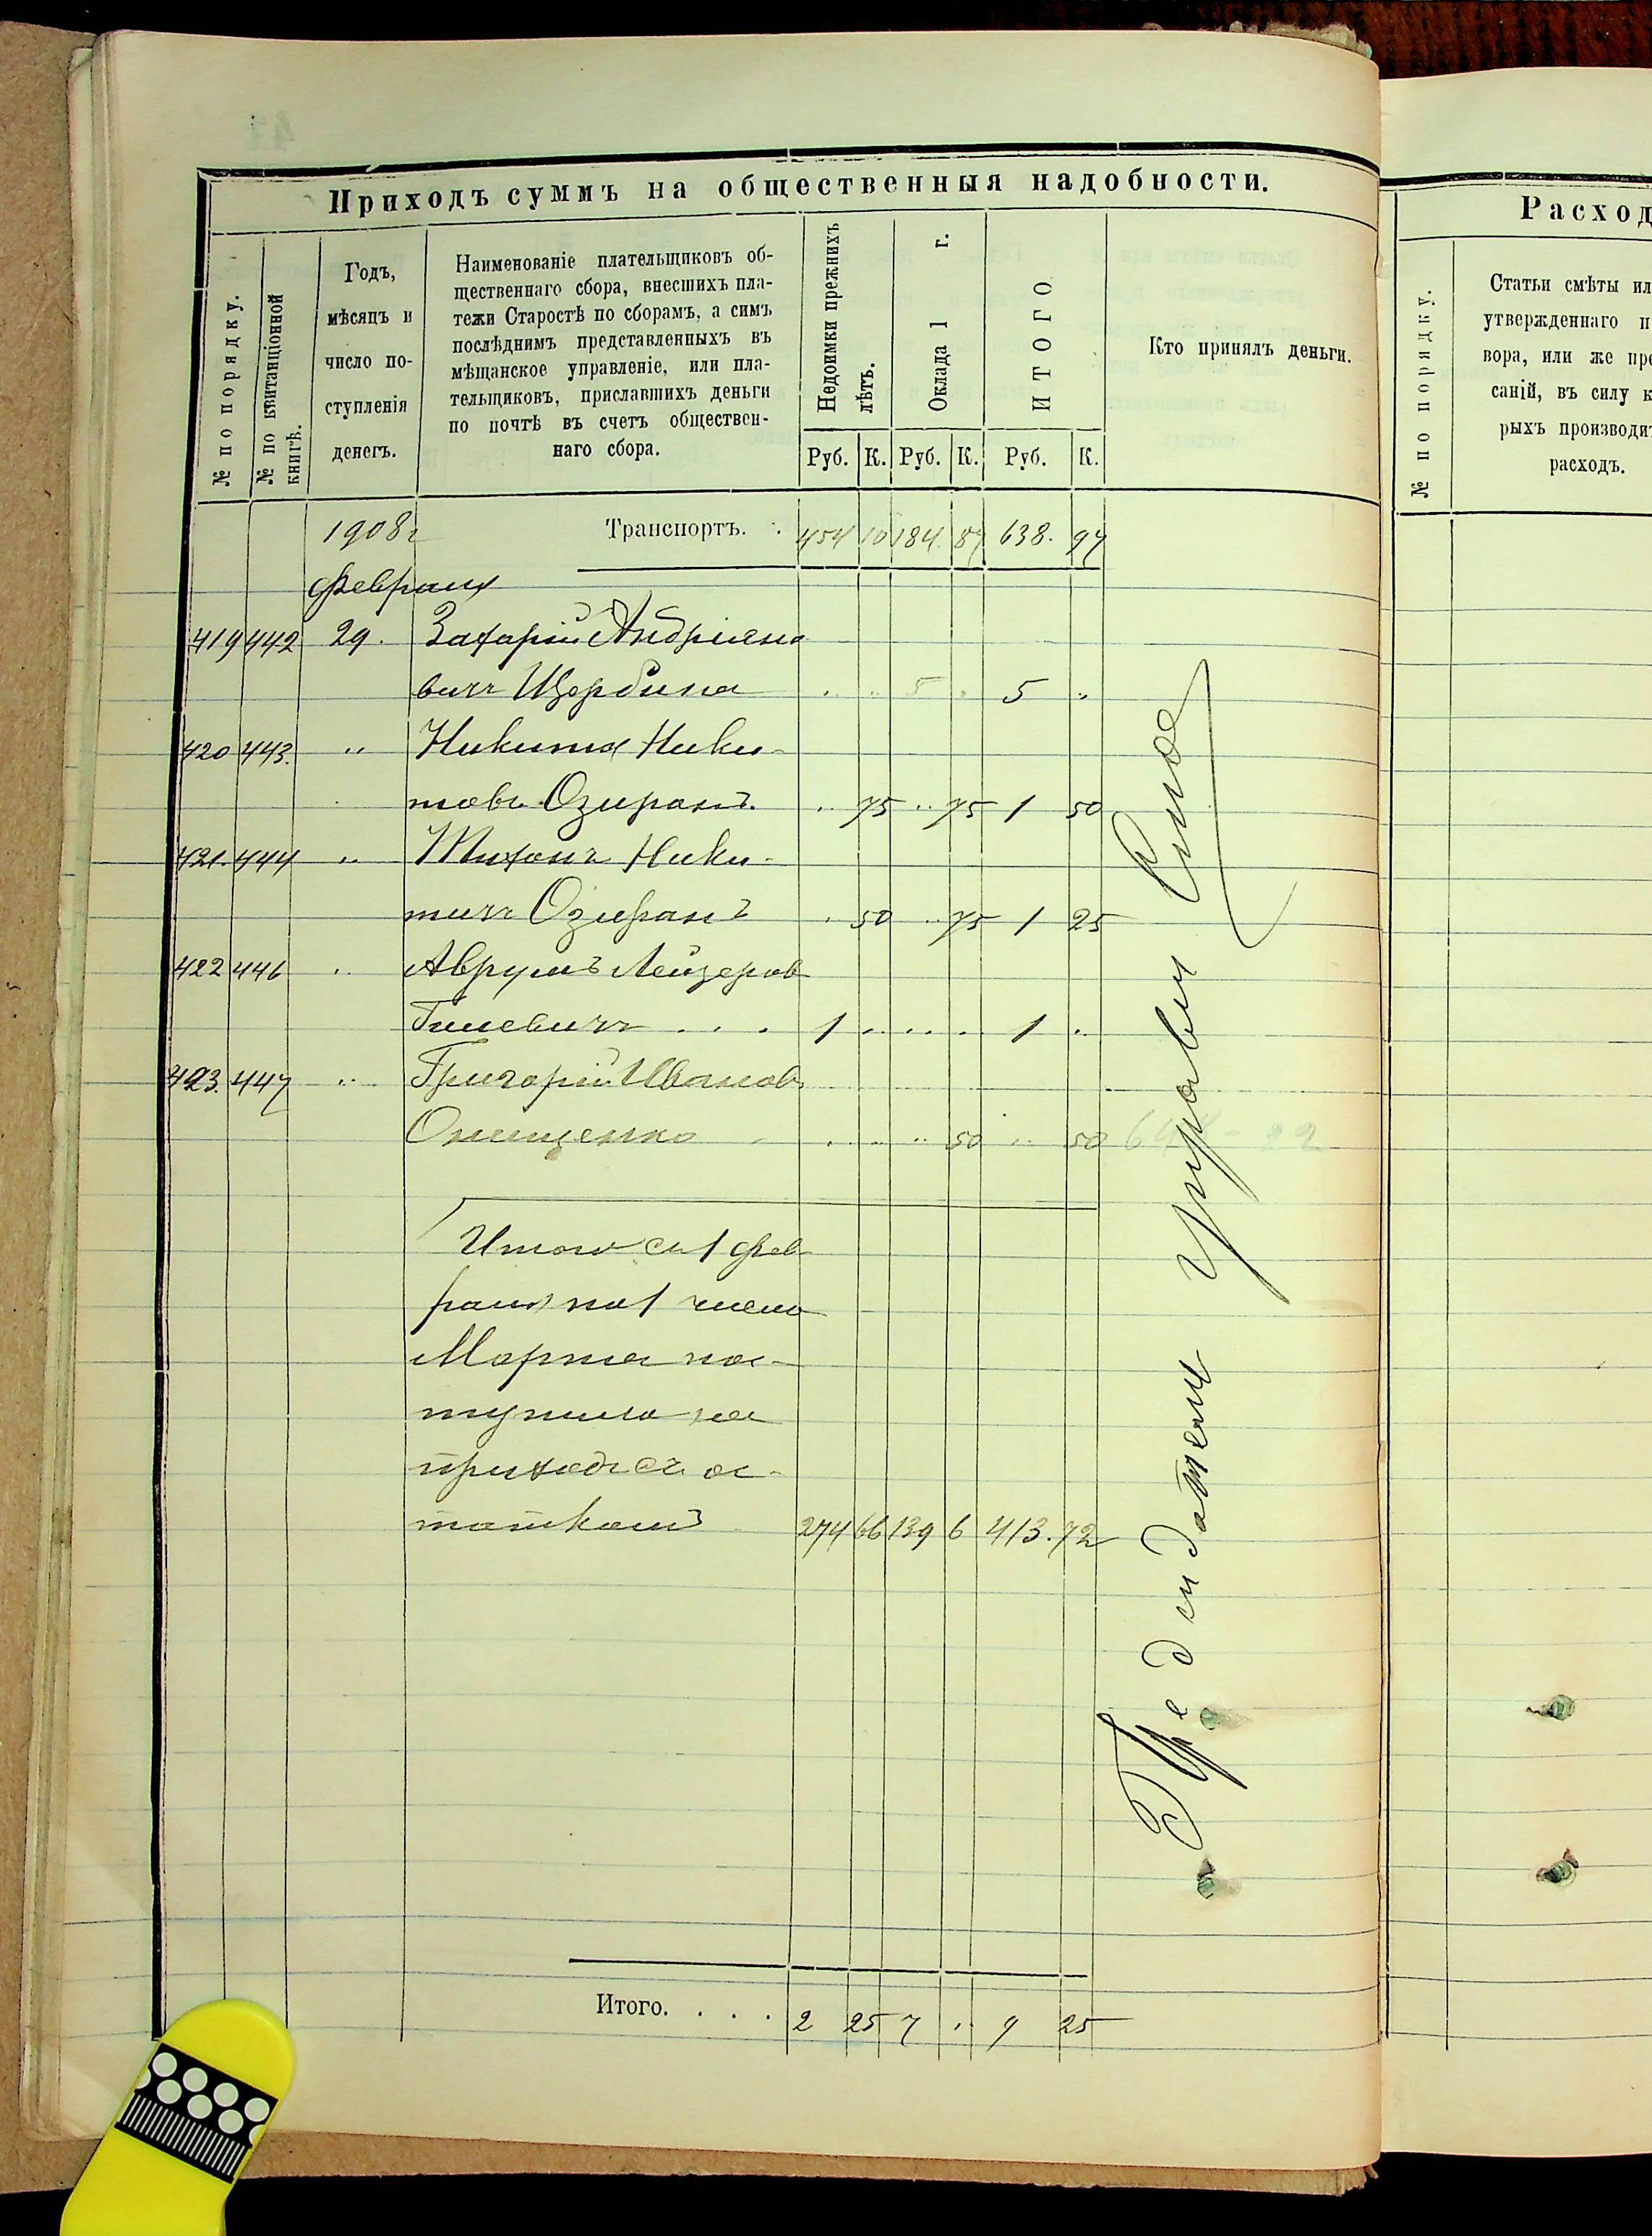 Приходъ суммъ на общественныя надобности.
№ по порядку.
№ по квитанціонной книгѣ.
Годъ,
мѣсяцъ и
число по-
ступленія
денегъ.
Наименованіе плательщиковъ об-
щественнаго сбора, внесшихъ пла-
тежи Старостѣ по сборамъ, а симъ
послѣднимъ представленныхъ въ
мѣщанское управленіе, или пла-
тельщиковъ, приславшихъ деньги
по почтѣ въ счетъ обществен-
наго сбора.
Недоимки прежнихъ
лѣтъ.
Оклада 1 г.
ИТОГО
Кто принялъ деньги.
Руб. К. Руб. К. Руб. К.
1908г Транспортъ. 454 10 184. 87 638. 97
Февраля
419 442 29. Захарій Андріяно
вичъ Щербина 5 5
420 443. Никита Ники-
товъ Озиранъ. 75 75 1 50
421. 444 Тихонъ Ники-
тичъ Озиранъ 50 75 1 25
422 446 Аврумъ Лейзеров
1 1
423. 447 Григорій Иванов
Онищенко 50 50
Итого съ 1 фев
раля по 1 число
Марта пос-
тупило на
приходъ съ ос-
таткомъ 274 66 139 6 413. 72
Предсѣдатель управы
Итого. . . . 2 25 7 9 25
Расход
№ по порядку.
Статьи смѣты ил
утвержденнаго п
вора, или же пре
саній, въ силу к
рыхъ производит
расходъ.